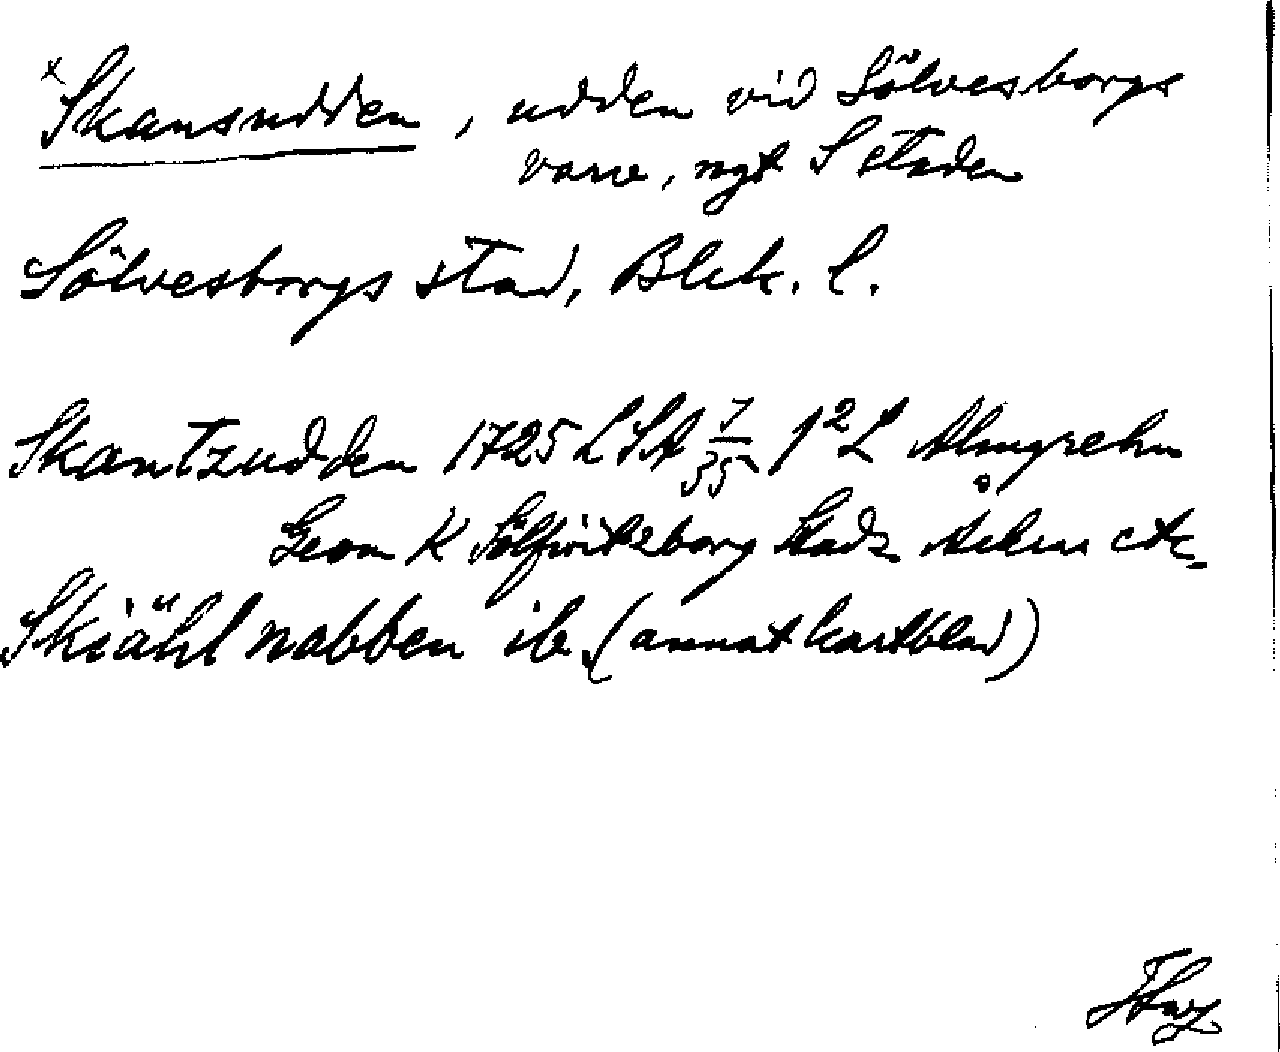 x Skansudden, udden vid Sölvesborgs
varv, ngt S staden
Sölvesborgs stad, Blek. l.
Skantzudden 1725 LSA 7/35 1² L Almgrehn
Geom K Stadz Åker etc
Skiähl nabben ib. (annat kartblad)